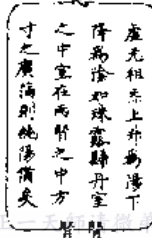 虛无相乘上升為陽下
降為陰如珠露歸丹室
之中室在兩腎之中方
寸之廣滿則純陽備矣